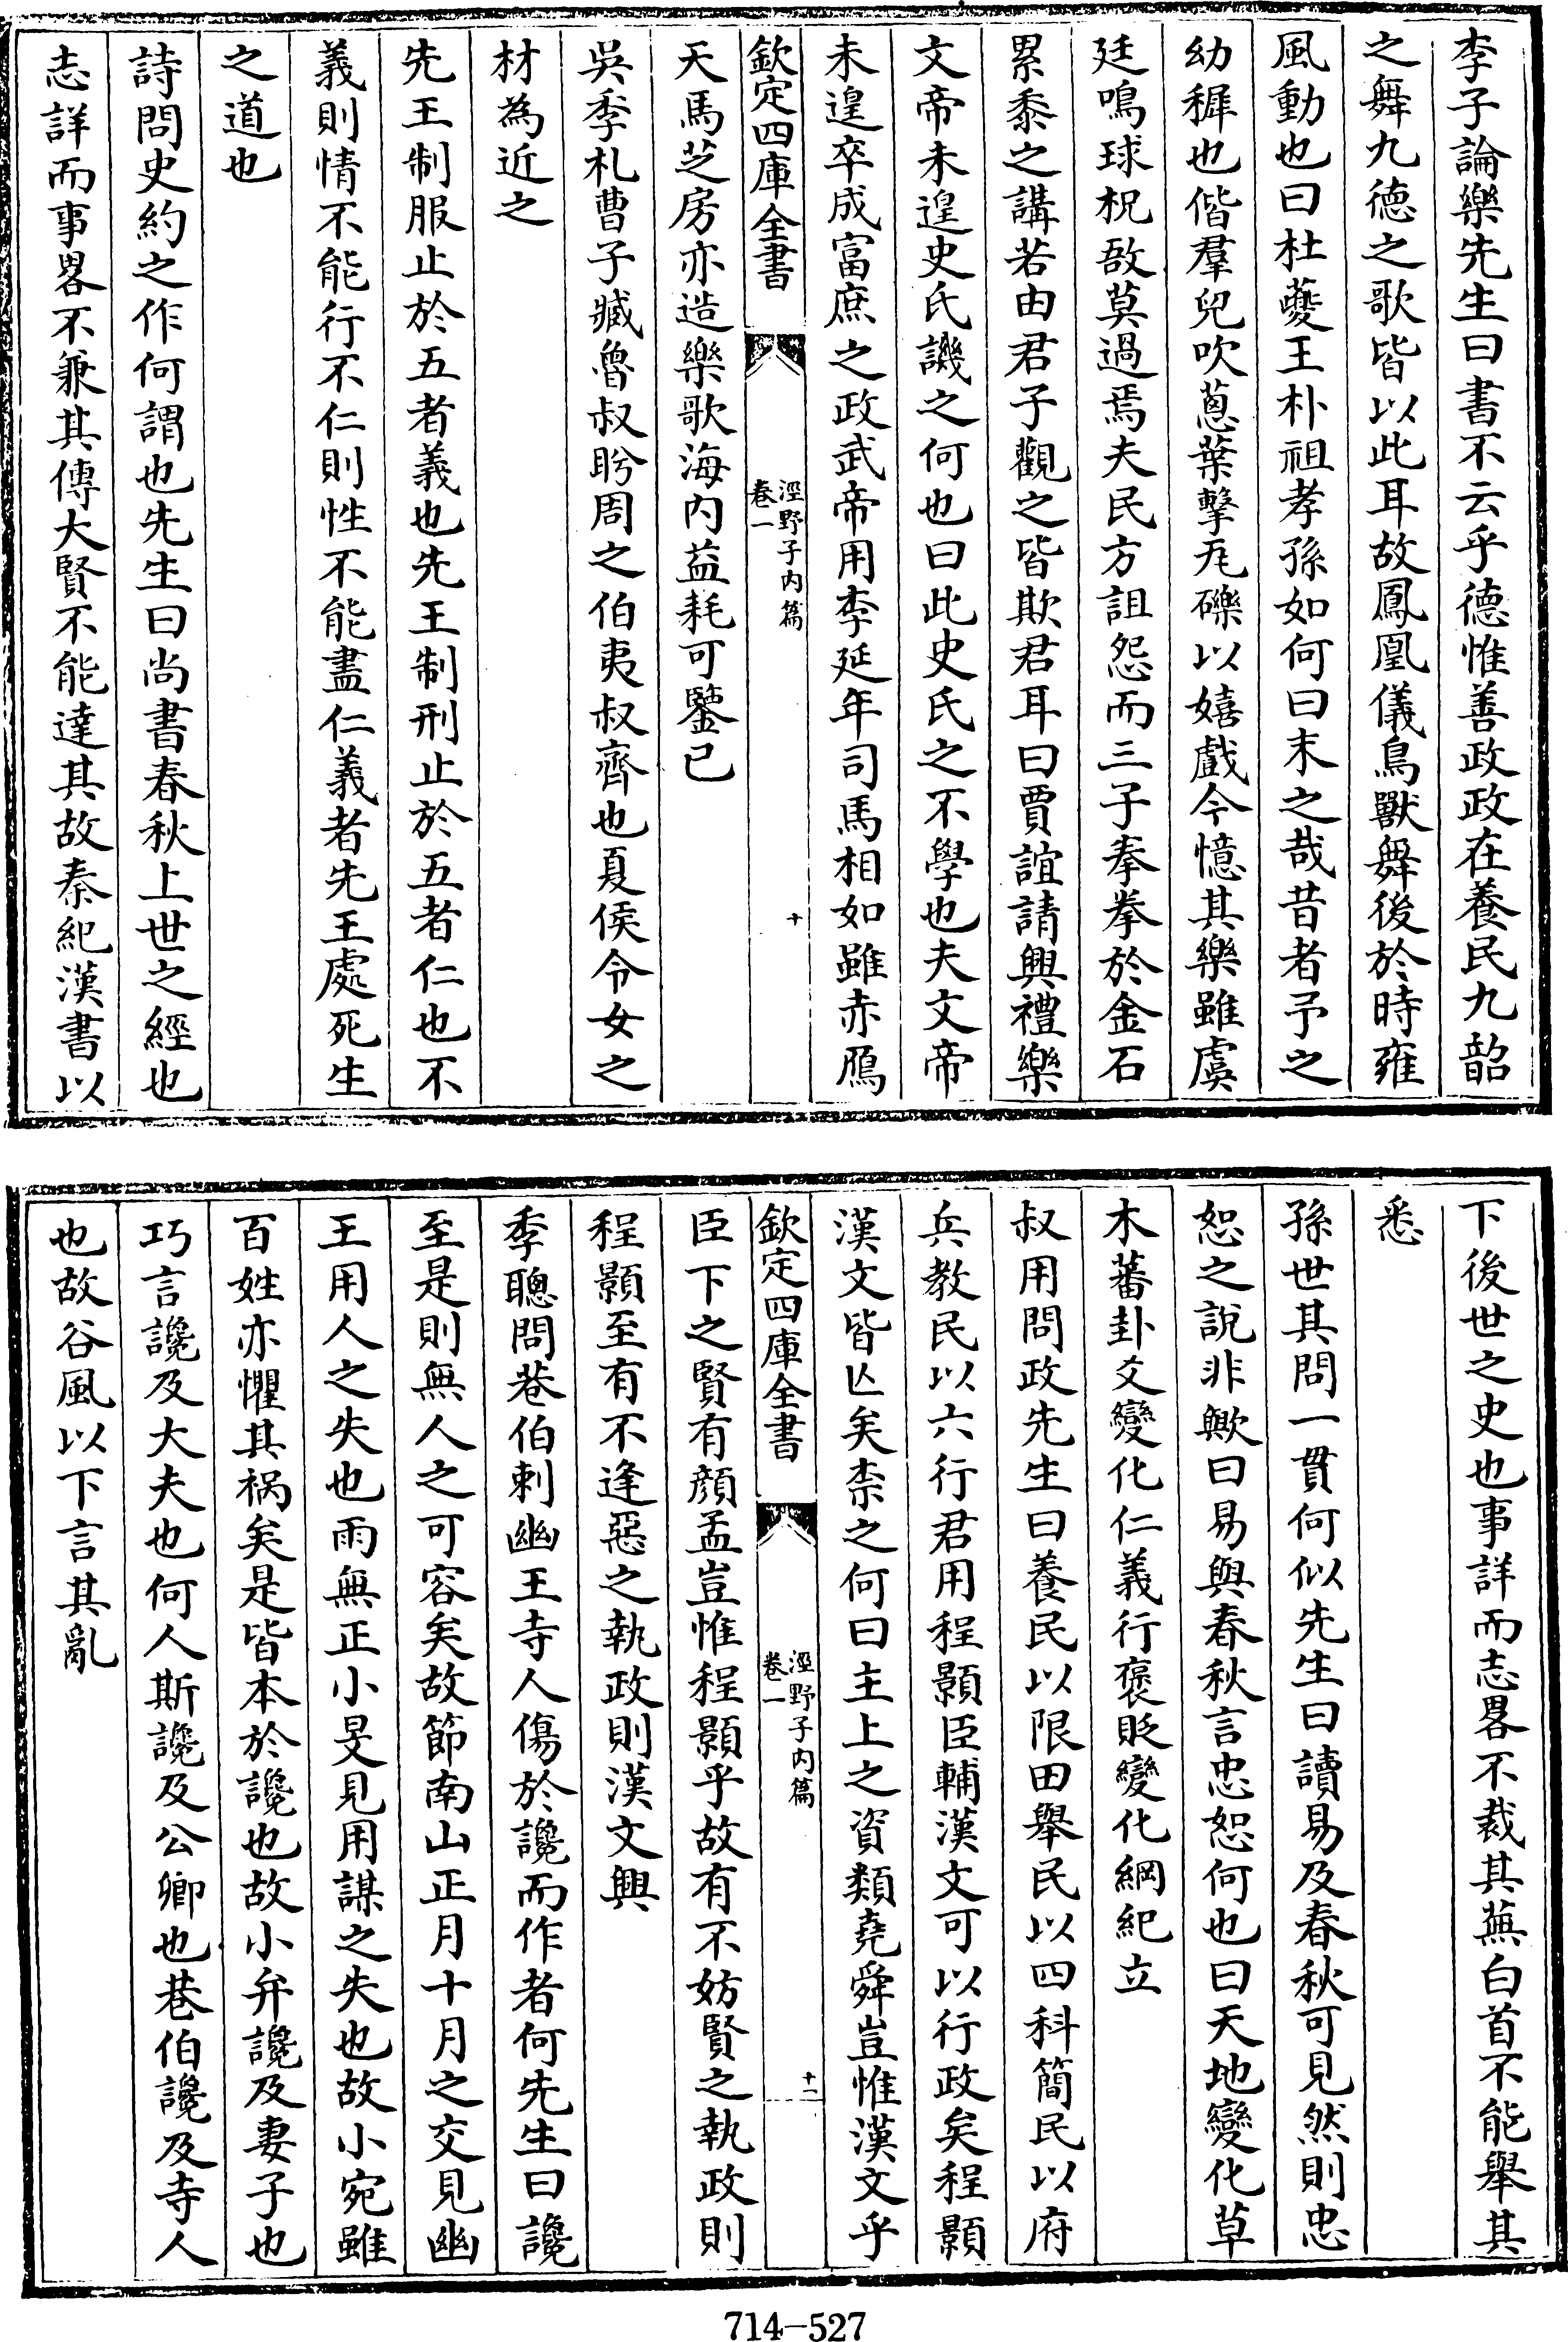 李子論樂先生曰書不云乎德惟善政政在養民九韶
之舞九德之歌皆以此耳故鳳凰儀鳥獸舞後於時雍
風動也曰杜夔王朴祖孝孫如何曰末之哉昔者予之
幼穉也偕羣兒吹蔥葉擊瓦礫以嬉戲今憶其樂雖虞
廷鳴球柷敔莫過焉夫民方詛怨而三子拳拳於金石
累黍之講若由君子觀之皆欺君耳曰賈誼請興禮樂
文帝未遑史氏譏之何也曰此史氏之不學也夫文帝
未遑卒成富庶之政武帝用李延年司馬相如雖赤鴈
欽定四庫全書
涇野子內篇
卷一
十
天馬芝房亦造樂歌海內益耗可鑒已
吳季札曹子臧魯叔肸周之伯夷叔齊也夏侯令女之
材為近之
先王制服止於五者義也先王制刑止於五者仁也不
義則情不能行不仁則性不能盡仁義者先王處死生
之道也
詩問史約之作何謂也先生曰尚書春秋上世之經也
志詳而事畧不兼其傳大賢不能達其故秦紀漢書以
下後世之史也事詳而志畧不裁其蕪白首不能舉其
悉
孫世其問一貫何似先生曰讀易及春秋可見然則忠
恕之說非歟曰易與春秋言忠恕何也曰天地變化草
木蕃卦爻變化仁義行褒貶變化綱紀立
叔用問政先生曰養民以限田舉民以四科簡民以府
兵教民以六行君用程顥臣輔漢文可以行政矣程顥
漢文皆亾矣柰之何曰主上之資類堯舜豈惟漢文乎
欽定四庫全書
涇野子內篇
卷一
十一
臣下之賢有顏孟豈惟程顥乎故有不妨賢之執政則
程顥至有不逢惡之執政則漢文興
季聰問巷伯刺幽王寺人傷於讒而作者何先生曰讒
至是則無人之可容矣故節南山正月十月之交見幽
王用人之失也雨無正小旻見用謀之失也故小宛雖
百姓亦懼其禍矣是皆本於讒也故小弁讒及妻子也
巧言讒及大夫也何人斯讒及公卿也巷伯讒及寺人
也故谷風以下言其亂
714-527